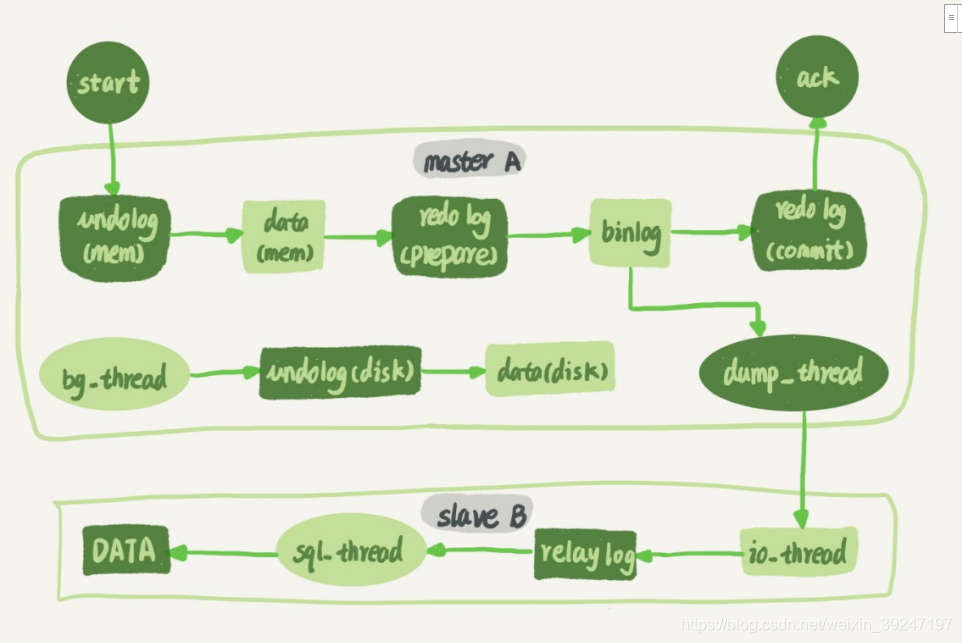 start
ack
master A
undolog
(mem)
data
(mem)
redo log
(prepare)
binlog
redo log
(commit)
bg_thread
undolog(disk)
data(disk)
dump_thread
slave B
DATA
sql_thread
relay log
io_thread
https://blog.csdn.net/weixin_39247197